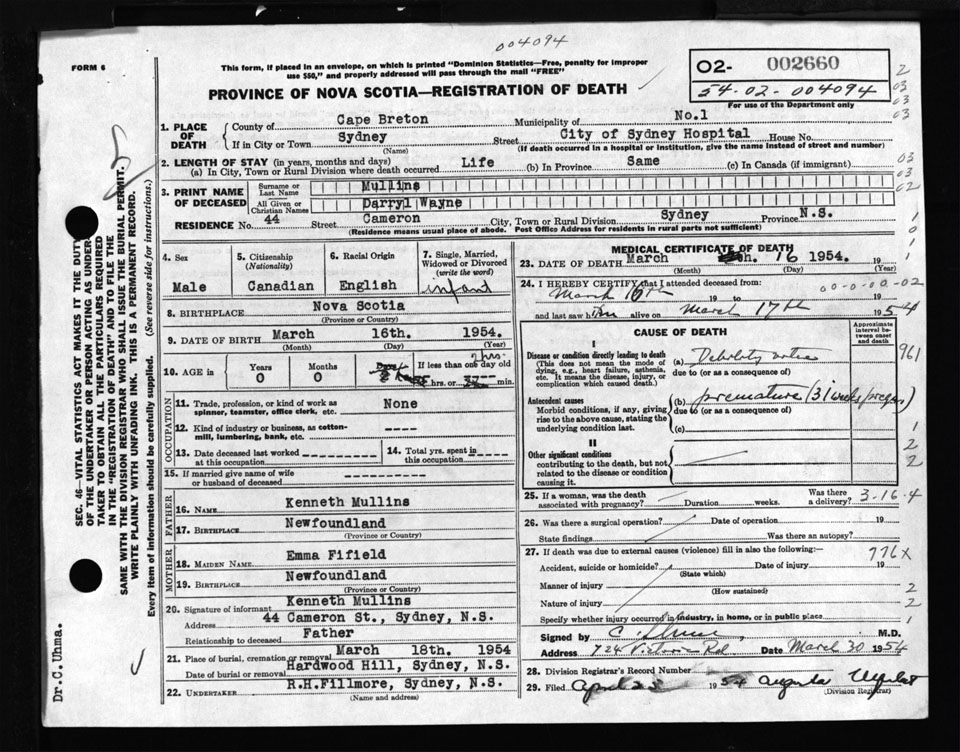 004094
FORM 6
This form, if placed in an envelope, on which is printed "Dominion Statistics—Free, penalty for improper
use $50," and properly addressed will pass through the mail "FREE"
02- 002660
54-02-004094
For use of the Department only
PROVINCE OF NOVA SCOTIA—REGISTRATION OF DEATH
1. PLACE OF DEATH
County of Cape Breton Municipality of No.1
If in City or Town Sydney Street City of Sydney Hospital House No.
(Name) (If death occurred in a hospital or institution, give the name instead of street and number)
2. LENGTH OF STAY (in years, months and days)
(a) In City, Town or Rural Division where death occurred Life (b) In Province Same (c) In Canada (if immigrant)
3. PRINT NAME OF DECEASED
Surname or Last Name Mullins
All Given or Christian Names Darryl Wayne
RESIDENCE No. 44 Street Cameron City, Town or Rural Division Sydney Province N.S.
(Residence means usual place of abode. Post Office Address for residents in rural parts not sufficient)
4. Sex Male
5. Citizenship (Nationality) Canadian
6. Racial Origin English
7. Single, Married, Widowed or Divorced (write the word) infant
8. BIRTHPLACE Nova Scotia
(Province or Country)
9. DATE OF BIRTH March 16th. 1954.
(Month) (Day) (Year)
10. AGE in Years 0 Months 0 If less than one day old hrs. or min.
OCCUPATION
11. Trade, profession, or kind of work as spinner, teamster, office clerk, etc. None
12. Kind of industry or business, as cotton-mill, lumbering, bank, etc. ----
13. Date deceased last worked at this occupation
14. Total yrs. spent in this occupation
15. If married give name of wife or husband of deceased
FATHER
16. NAME Kenneth Mullins
17. BIRTHPLACE Newfoundland
(Province or Country)
MOTHER
18. MAIDEN NAME Emma Fifield
19. BIRTHPLACE Newfoundland
(Province or Country)
20. Signature of informant Kenneth Mullins
Address 44 Cameron St., Sydney, N.S.
Relationship to deceased Father
21. Place of burial, cremation or removal March 18th. 1954
Date of burial or removal Hardwood Hill, Sydney, N.S.
22. UNDERTAKER R.H.Fillmore, Sydney, N.S.
(Name and address)
MEDICAL CERTIFICATE OF DEATH
23. DATE OF DEATH March 16 1954.
(Month) (Day) (Year)
24. I HEREBY CERTIFY that I attended deceased from:
March 16th 19 to 19 00-0-00-02
and last saw him alive on March 17th 1954
CAUSE OF DEATH
Approximate interval between onset and death
I
Disease or condition directly leading to death
(This does not mean the mode of dying, e.g., heart failure, asthenia, etc. It means the disease, injury, or complication which caused death.)
(a) Debility
due to (or as a consequence of)
961
Antecedent causes
Morbid conditions, if any, giving rise to the above cause, stating the underlying condition last.
(b) premature (31 weeks
due to (or as a consequence of)
(c)
II
Other significant conditions
contributing to the death, but not related to the disease or condition causing it.
25. If a woman, was the death associated with pregnancy? Duration weeks. Was there a delivery? 3-16-4
26. Was there a surgical operation? Date of operation 19
State findings Was there an autopsy?
27. If death was due to external causes (violence) fill in also the following:— 776x
Accident, suicide or homicide? Date of injury 19
(State which)
Manner of injury
(How sustained)
Nature of injury
Specify whether injury occurred in industry, in home, or in public place
Signed by M.D.
Address 724 Victoria Rd Date March 30 1954
28. Division Registrar's Record Number
29. Filed April 1954 Augusta
(Division Registrar)
SEC. 46—VITAL STATISTICS ACT MAKES IT THE DUTY
OF THE UNDERTAKER OR PERSON ACTING AS UNDER-
TAKER TO OBTAIN ALL THE PARTICULARS REQUIRED
IN THE "REGISTRATION OF DEATH" AND TO FILE THE
SAME WITH THE DIVISION REGISTRAR WHO SHALL ISSUE THE BURIAL PERMIT.
WRITE PLAINLY WITH UNFADING INK. THIS IS A PERMANENT RECORD.
Every item of information should be carefully supplied. (See reverse side for instructions.)
Dr.C.Uhma.